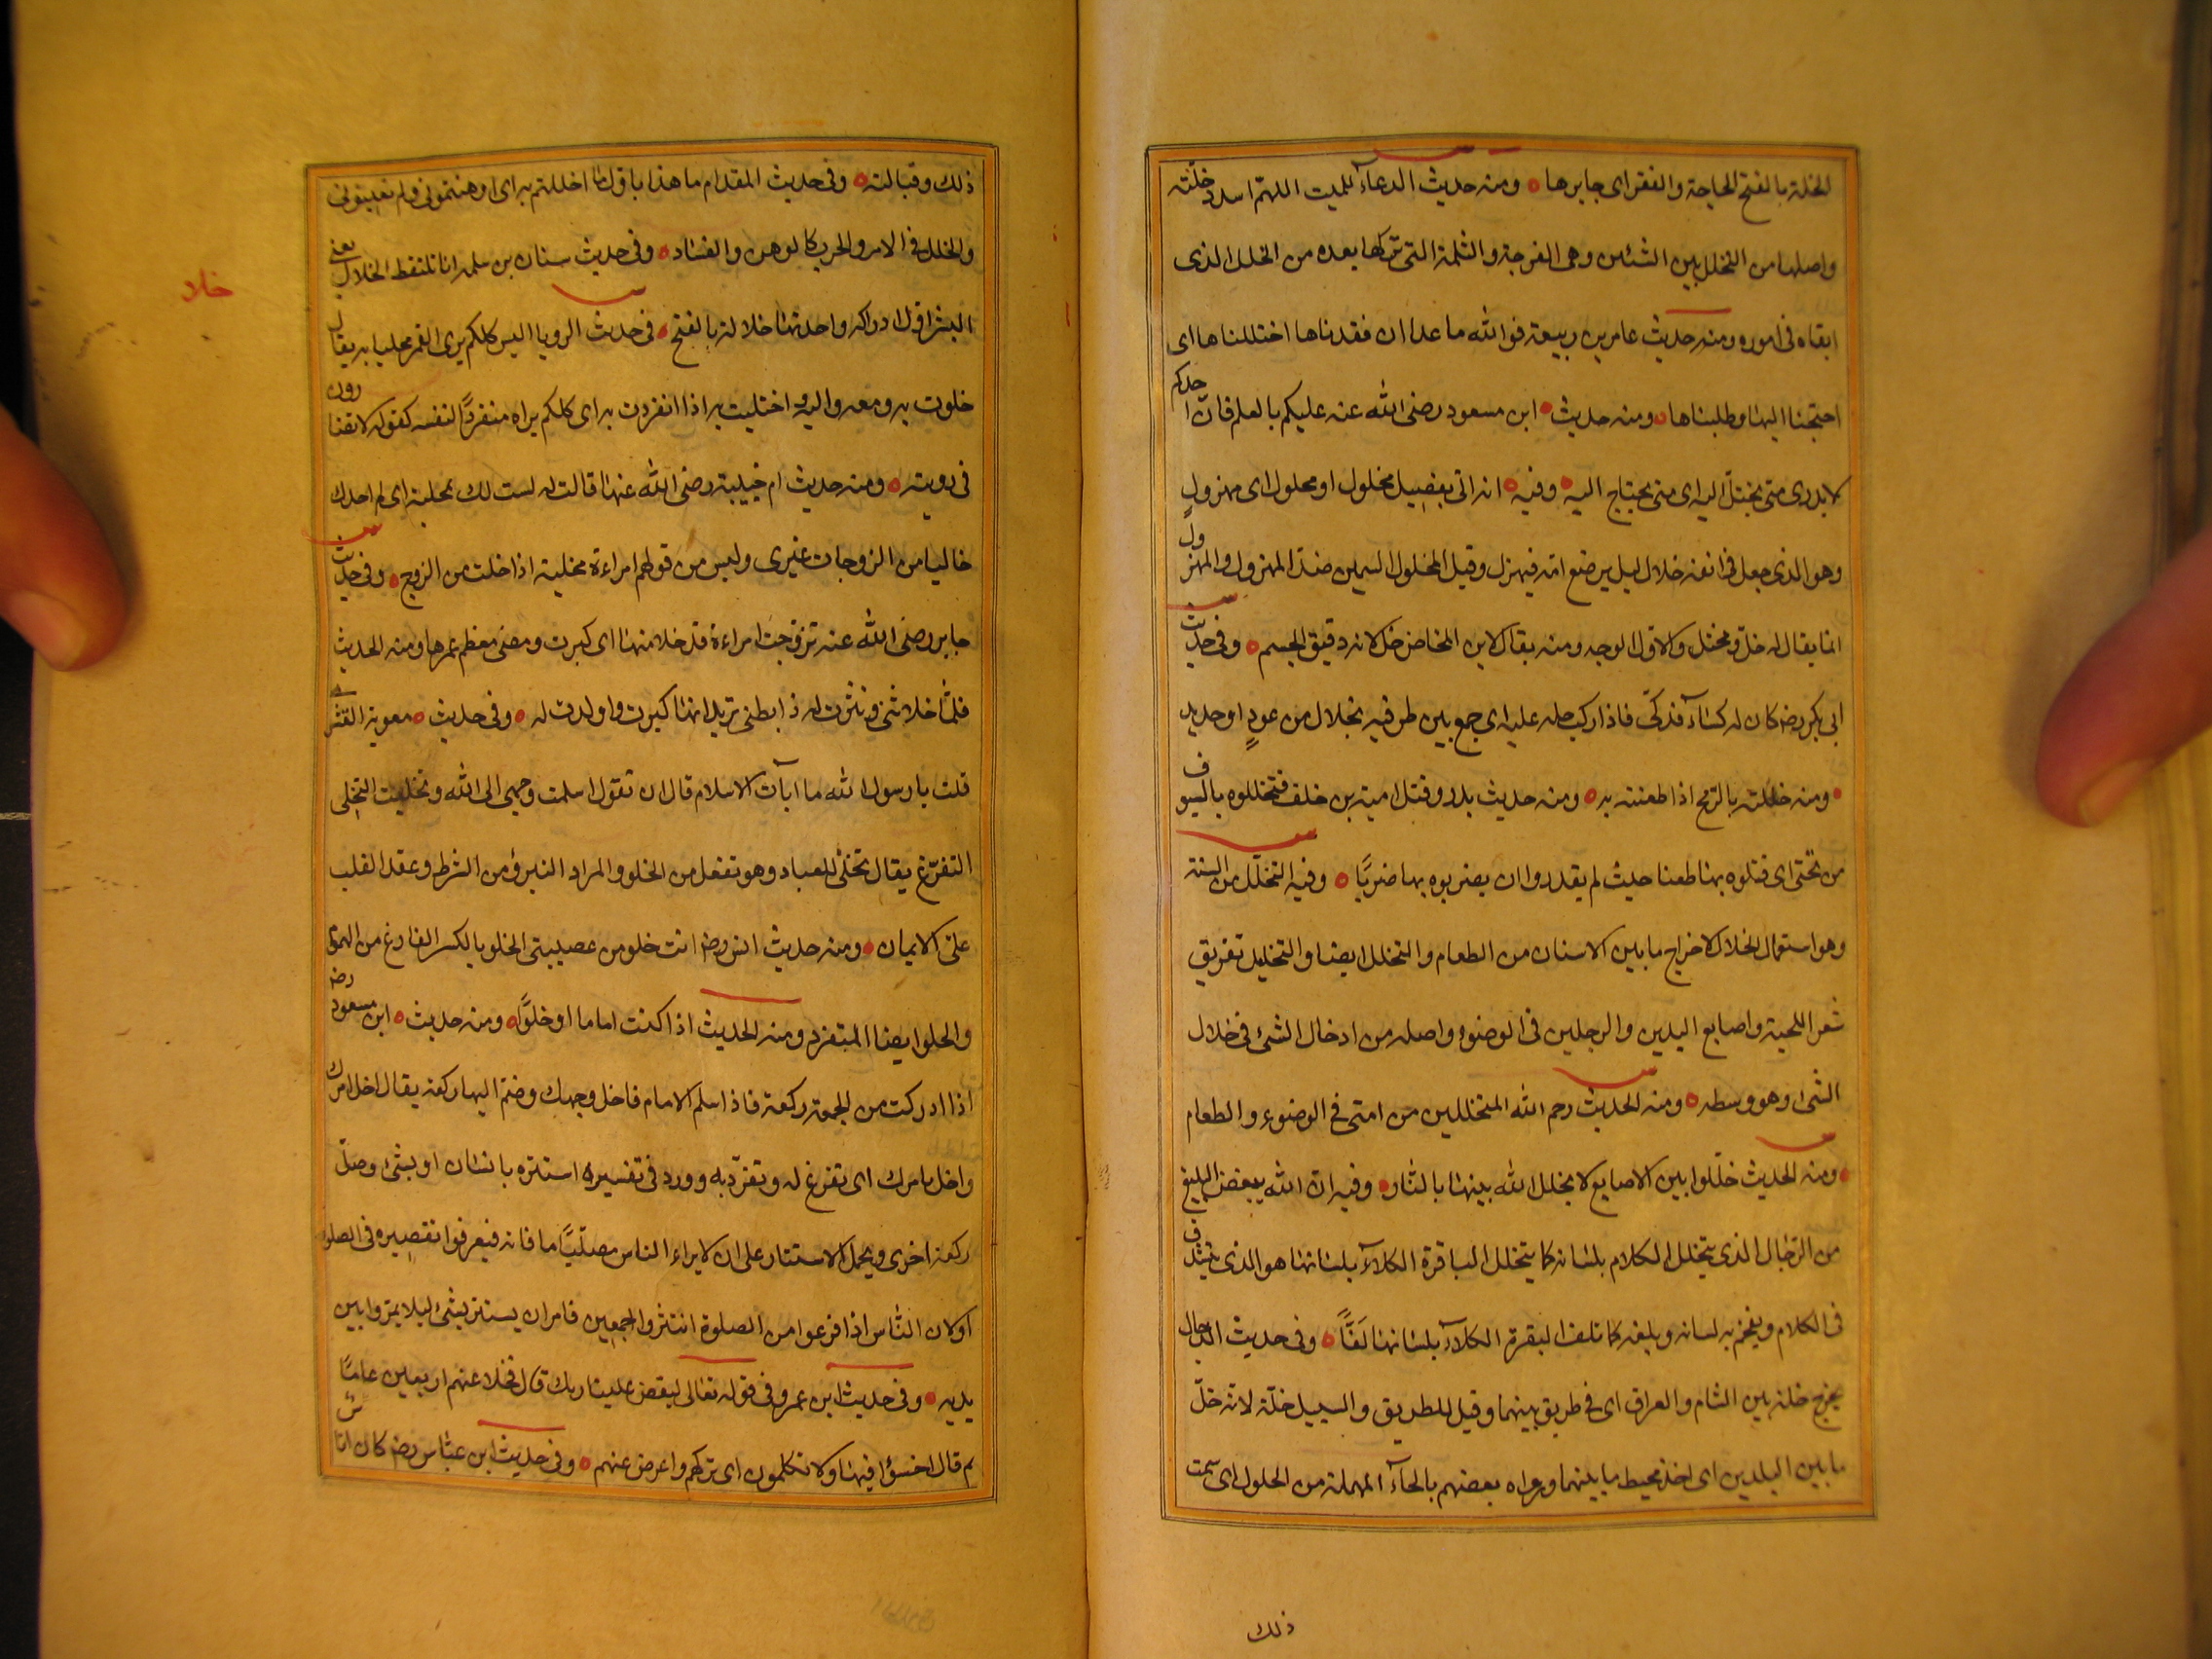 الخلة بالفتح الحاجة والفقر اى جابرها ومنه حديث الدعاء للميت اللهم اسدد خلّته
واصلها من التخلل بين الشئين وهى الفرجة والثلمة التى تركها بعده من الخلل الذى
ابقاه فى اموره ومنه حديث عامر بن ربيعة فوالله ما عدا ان فقدناها اختللناها اى
احتجنا اليها وطلبناها ومنه حديث ابن مسعود رضى الله عنه عليكم بالعلم فان احدكم
لا يدرى متى يختلّ اليه اى متى يحتاج اليه وفيه انه اتى بفصيل مخلول او محلول اى مهزول
وهو الذى جعل فى انفه خلال ليلا يرضع امه فيهزل وقيل المخلول السمين ضدّ المهزول والمهزول
انما يقال له خلّ ومختل والاول الوجه ومنه يقال لابن المخاض خلّ لانه دقيق الجسم وفى حديث
ابى بكر رضه كان له كساء فدكىّ فاذا ركب خله عليه اى جمع بين طرفيه بخلال من عود او حديد
ومنه خللته بالرمح اذا طعنته به ومنه حديث بدر وقتل امية بن خلف فتخللوه بالسيوف
من تحتى اى قتلوه بها طعنا حيث لم يقدروا ان يضربوه بها ضربًا وفيه التخلّل من السنة
وهو استعمال الخلال لاخراج ما بين الاسنان من الطعام والتخلل ايضا والتخليل تفريق
شعر اللحية واصابع اليدين والرجلين فى الوضوء واصله من ادخال الشئ فى خلال
الشئ وهو وسطه ومنه الحديث رحم الله المتخللين من امتى فى الوضوء والطعام
ومنه الحديث خلّلوا بين الاصابع لا يخلل الله بينها بالنار وفيه ان الله يبغض البليغ
من الرجال الذى يتخلل الكلام بلسانه كما يتخلل الباقرة الكلاء بلسانها هو الذى يتشدق
فى الكلام ويفخم به لسانه ويلفه كما تلف البقرة الكلاء بلسانها لَفًّا وفى حديث الدجال
يخرج خلة بين الشام والعراق اى فى طريق بينهما وقيل للطريق والسبيل خلّة لانه خلّ
ما بين البلدين اى اخذ محيط ما بينهما ورواه بعضهم بالحاء المهملة من الحلول اى سمت
ذلك
ذلك وقبالته وفى حديث المقدام ما هذا باول ما اخللتم به اى اوهنتمونى ولم تعينونى
والخلل فى الامر والحرب كالوهن والفساد وفى حديث سنان بن سلمه انا نلتقط الخلال يعنى
البسر اول ادراكه واحدتها خلالة بالفتح فى حديث الرويا اليس كلكم يرى القمر مخليا به يقال
خلوت به ومعه واليه اختليت به اذا انفردت به اى كلكم يراه منفردًا لنفسه كقوله لا تضارون
فى رويته ومنه حديث ام حبيبة رضى الله عنها قالت له لست لك بمخلية اى لم اجدك
خاليا من الزوجات غيرى وليس من قولهم امراءة مخلية اذا خلت من الزوج وفى حديث
جابر رضى الله عنه تزوجت امراءة قد خلا منها اى كبرت ومضى معظم عمرها ومنه الحديث
فلما خلا سنى ونثرت له ذا بطنى تريد انها كبرت واولدت له وفى حديث معوية القشيرى
قلت يا رسول الله ما آيات الاسلام قال ان تقول اسلمت وجهى الى الله وتخليت التخلى
التفرّغ يقال تخلّى للعباد وهو تفعل من الخلو والمراد التبرؤ من الشرك وعقد القلب
على الايمان ومنه حديث انس رضه انت خلو من مصيبتى الخلو بالكسر الفارغ من الهموم
والخلو ايضا المنفرد ومنه الحديث اذا كنت اماما او خلوًا ومنه حديث ابن مسعود رضه
اذا ادركت من الجمعة ركعة فاذا سلم الامام فاخل وجهك وضم اليها ركعة يقال اخل امرك
واخل بامرك اى تفرغ له وتفرّد به وورد فى تفسيره استتره بانسان او بشئ وصلّ
ركعة اخرى ويحمل الاستتار على ان لا يراه الناس مصلّيًا ما فاته فيعرفوا تقصيره فى الصلوة
او لان الناس اذا فرغوا من الصلوة انتشروا اجمعين فامر ان يستتر بشئ ليلا يمرّوا بين
يديه وفى حديث ابن عمرو فى قوله تعالى ليقض علينا ربك قال فخلا عنهم اربعين عامًا
ثم قال اخسؤا فيها ولا تكلمون اى تركهم واعرض عنهم وفى حديث ابن عباس رضه كان اناس
خلا